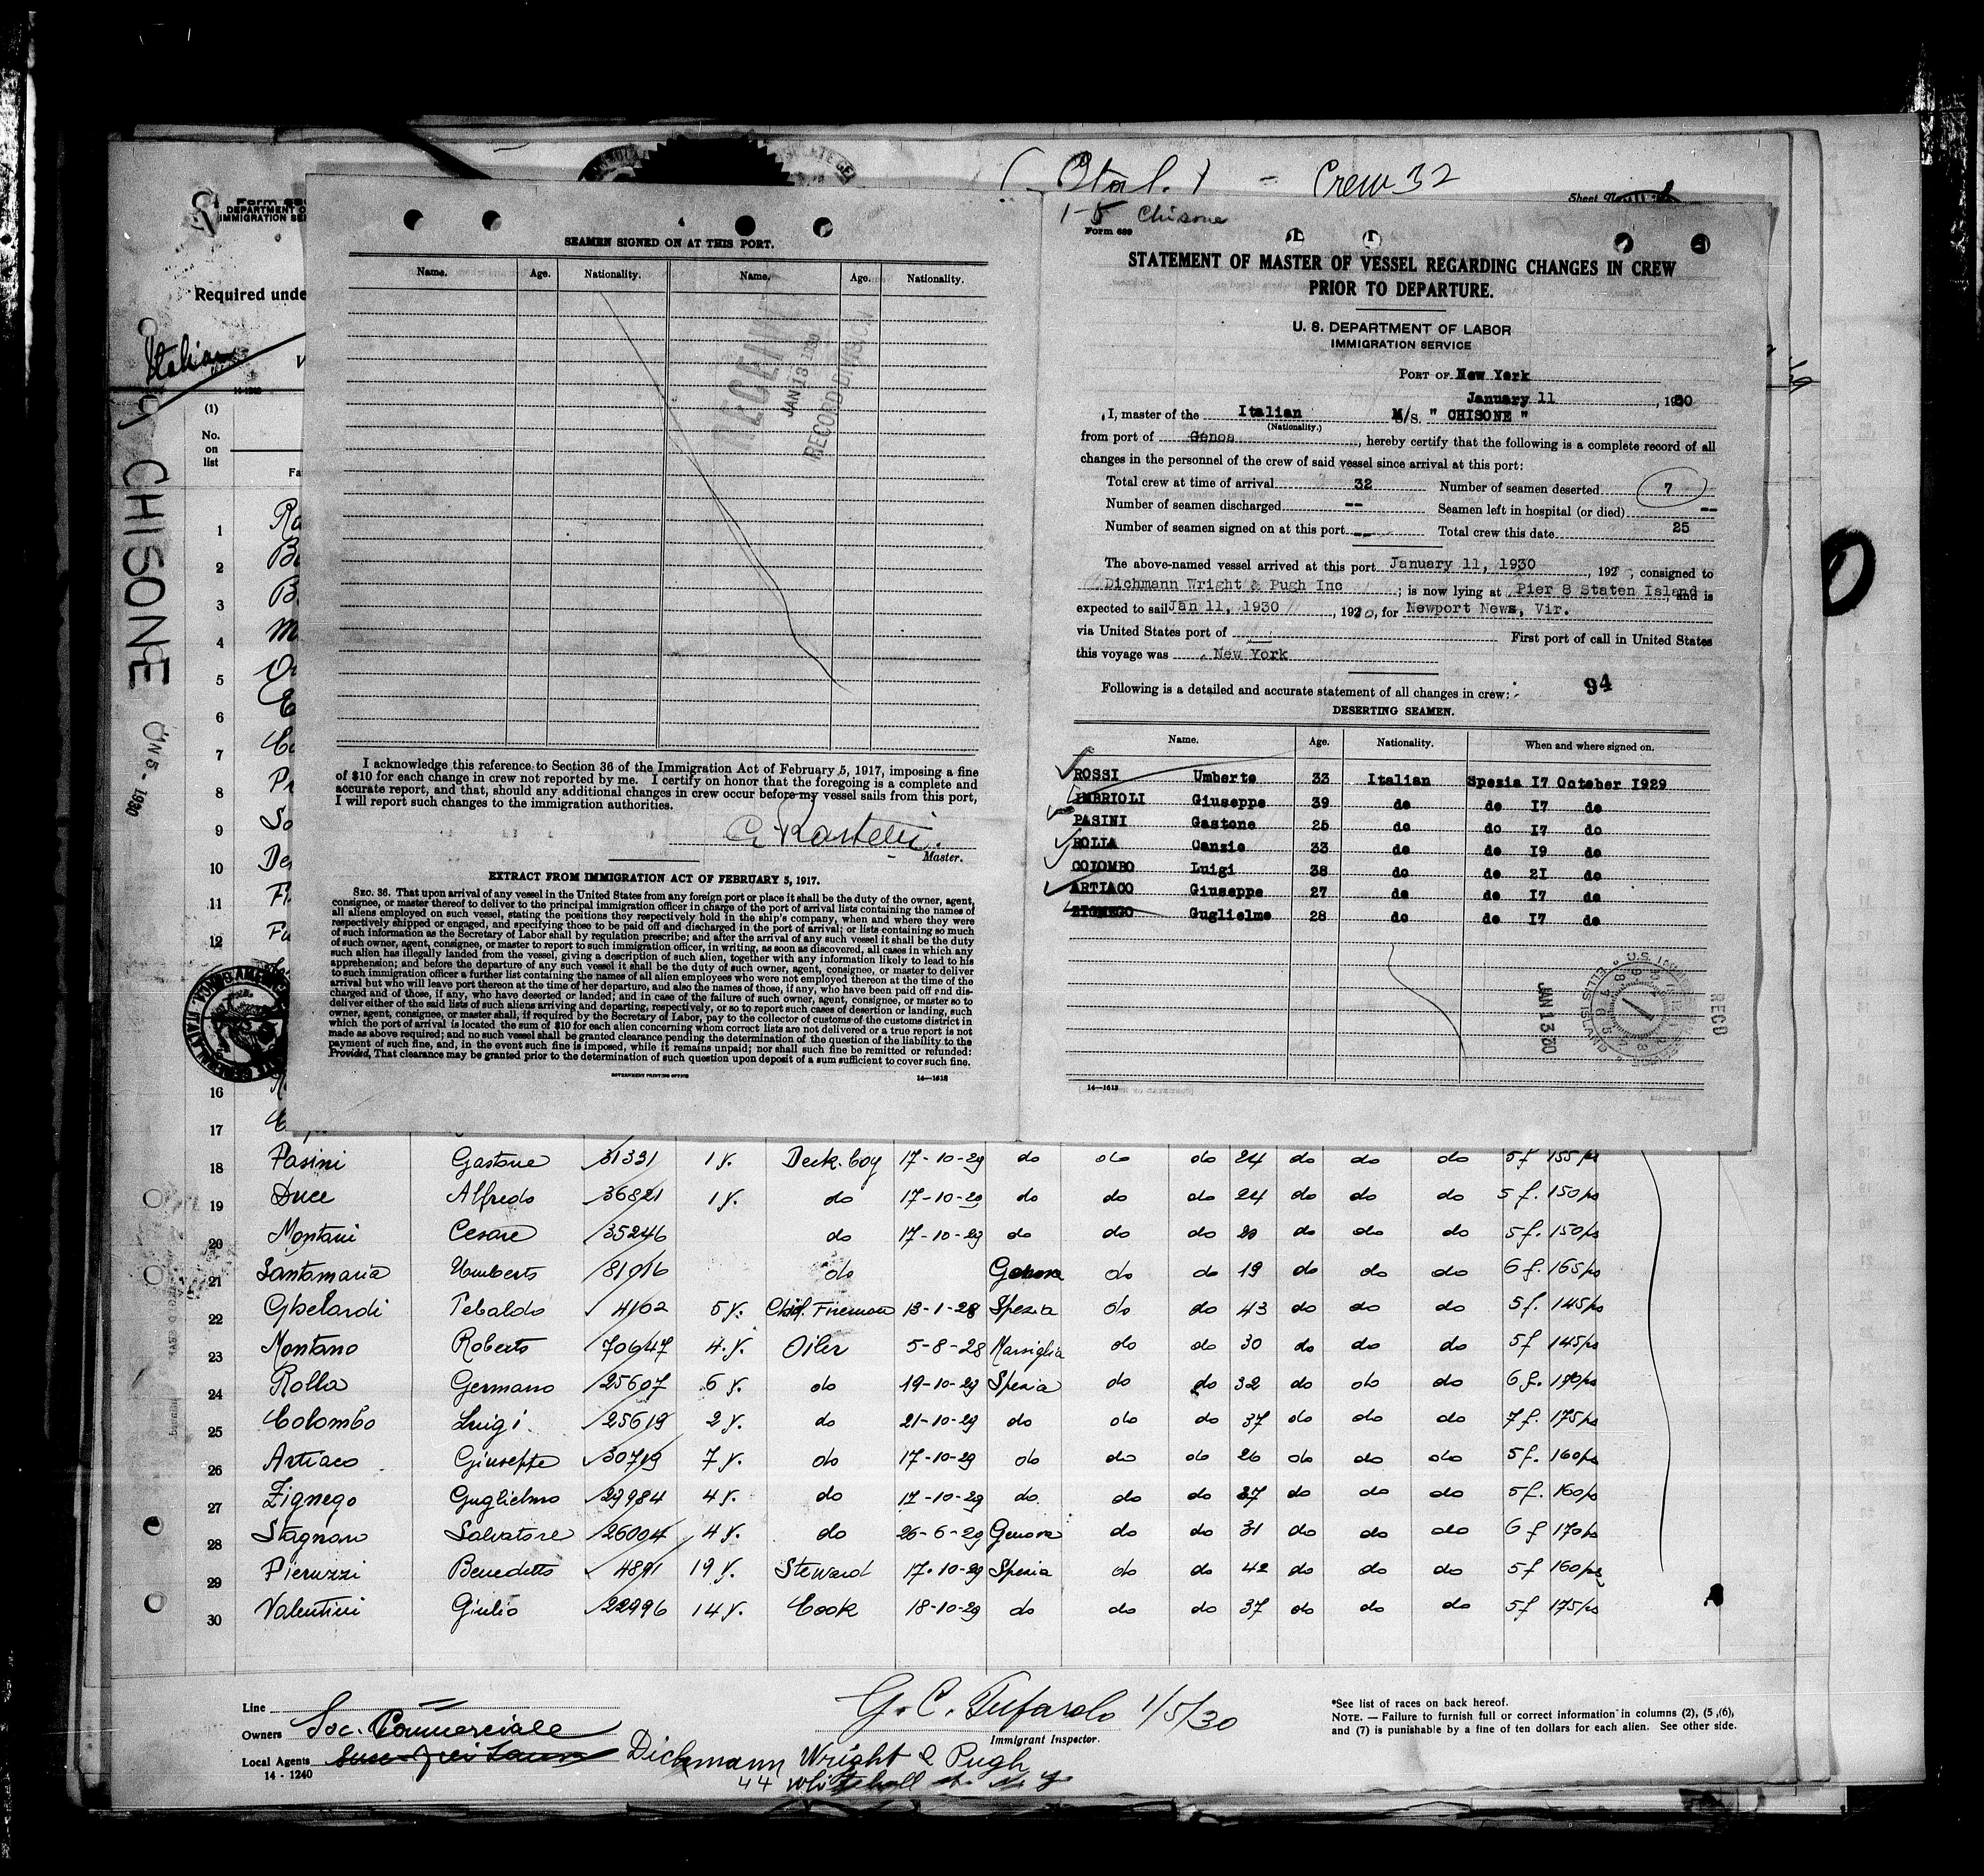 Crew 32
Sheet No.
DEPARTMENT O
IMMIGRATION SER
Required unde
Italian
(1)
No.
on
list
CHISONE
1930
SEAMEN SIGNED ON AT THIS PORT.
Name. Age. Nationality. Name. Age. Nationality.
RECEIVED
JAN 13 1930
RECORD DIVISION
I acknowledge this reference to Section 36 of the Immigration Act of February 5, 1917, imposing a fine
of $10 for each change in crew not reported by me. I certify on honor that the foregoing is a complete and
accurate report, and that, should any additional changes in crew occur before my vessel sails from this port,
I will report such changes to the immigration authorities.
Master.
EXTRACT FROM IMMIGRATION ACT OF FEBRUARY 5, 1917.
SEC. 36. That upon arrival of any vessel in the United States from any foreign port or place it shall be the duty of the owner, agent,
consignee, or master thereof to deliver to the principal immigration officer in charge of the port of arrival lists containing the names of
all aliens employed on such vessel, stating the positions they respectively hold in the ship's company, when and where they were
respectively shipped or engaged, and specifying those to be paid off and discharged in the port of arrival; or lists containing so much
of such information as the Secretary of Labor shall by regulation prescribe; and after the arrival of any such vessel it shall be the duty
of such owner, agent, consignee, or master to report to such immigration officer, in writing, as soon as discovered, all cases in which any
such alien has illegally landed from the vessel, giving a description of such alien, together with any information likely to lead to his
apprehension; and before the departure of any such vessel it shall be the duty of such owner, agent, consignee, or master to deliver
to such immigration officer a further list containing the names of all alien employees who were not employed thereon at the time of the
arrival but who will leave port thereon at the time of her departure, and also the names of those, if any, who have been paid off and dis-
charged and of those, if any, who have deserted or landed; and in case of the failure of such owner, agent, consignee, or master so to
deliver either of the said lists of such aliens arriving and departing, respectively, or so to report such cases of desertion or landing, such
owner, agent, consignee, or master shall, if required by the Secretary of Labor, pay to the collector of customs of the customs district in
which the port of arrival is located the sum of $10 for each alien concerning whom correct lists are not delivered or a true report is not
made as above required; and no such vessel shall be granted clearance pending the determination of the question of the liability to the
payment of such fine, and, in the event such fine is imposed, while it remains unpaid; nor shall such fine be remitted or refunded:
Provided, That clearance may be granted prior to the determination of such question upon deposit of a sum sufficient to cover such fine.
GOVERNMENT PRINTING OFFICE 14—1613
1-5 Chisone
Form 689
STATEMENT OF MASTER OF VESSEL REGARDING CHANGES IN CREW
PRIOR TO DEPARTURE.
U. S. DEPARTMENT OF LABOR
IMMIGRATION SERVICE
PORT OF New York
January 11, 1930
I, master of the Italian M/S. " CHISONE "
(Nationality.)
from port of Genoa, hereby certify that the following is a complete record of all
changes in the personnel of the crew of said vessel since arrival at this port:
Total crew at time of arrival 32 Number of seamen deserted 7
Number of seamen discharged -- Seamen left in hospital (or died) --
Number of seamen signed on at this port -- Total crew this date 25
The above-named vessel arrived at this port January 11, 1930, 192 , consigned to
Dichmann Wright & Pugh Inc ; is now lying at Pier 8 Staten Island, and is
expected to sail Jan 11, 1930, 1920, for Newport News, Vir.
via United States port of -- First port of call in United States
this voyage was New York
Following is a detailed and accurate statement of all changes in crew: 94
DESERTING SEAMEN.
Name. Age. Nationality. When and where signed on.
ROSSI Umberto 33 Italian Spezia 17 October 1929
IMBRIOLI Giuseppe 39 do do 17 do
PASINI Gastone 25 do do 17 do
ROLLA Canzio 33 do do 19 do
COLOMBO Luigi 38 do do 21 do
ARTIACO Giuseppe 27 do do 17 do
ZIGNEGO Guglielmo 28 do do 17 do
JAN 13 30
RECD
14—1613
1
2
3
4
5
6
7
8
9
10
11
12
16
17
18 Pasini Gastone 31331 1 y. Deck boy 17-10-29 do do do 24 do do do 5 f 155 ps
19 Duce Alfredo 36821 1 y. do 17-10-29 do do do 24 do do do 5 f. 150 ps
20 Montani Cesare 35246 do 17-10-29 do do do 20 do do do 5 f. 150 ps
21 Santamaria Umberto do Genova do do 19 do do do 6 f. 165 ps
22 Ghelardi Tebaldo 4102 5 y. Chief Fireman 13-1-28 Spezia do do 43 do do do 5 f. 145 ps
23 Montano Roberto 70647 4 y. Oiler 5-8-28 Marsiglia do do 30 do do do 5 f 145 ps
24 Rolla Germano 25607 6 y. do 19-10-29 Spezia do do 32 do do do 6 f. 190 ps
25 Colombo Luigi 25619 2 y. do 21-10-29 do do do 37 do do do 7 f. 175 ps
26 Artiaco Giuseppe 30719 7 y. do 17-10-29 do do do 26 do do do 5 f. 160 ps
27 Zignego Guglielmo 29984 4 y. do 17-10-29 do do do 27 do do do 5 f. 160 ps
28 Stagnaro Salvatore 26004 4 y. do 26-6-29 Genova do do 31 do do do 6 f 170 ps
29 Pieruzzi Benedetto 4891 19 y. Steward 17-10-29 Spezia do do 42 do do do 5 f 160 ps
30 Valentini Giulio 22996 14 y. Cook 18-10-29 do do do 37 do do do 5 f 175 ps
Line
Owners Soc. Commerciale
Local Agents Dichmann Wright & Pugh
44 Whitehall St. N. Y
14 - 1240
G. C. Tufarolo 1/5/30
Immigrant Inspector.
*See list of races on back hereof.
NOTE. — Failure to furnish full or correct information in columns (2), (5), (6),
and (7) is punishable by a fine of ten dollars for each alien. See other side.